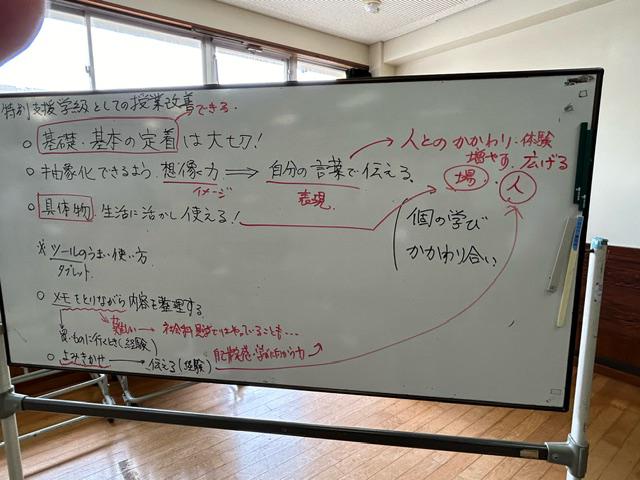 特別支援学級としての授業改善
できる.
○ 基礎・基本の定着は大切!
人とのかかわり・体験
増やす. 広げる
○ 抽象化できるよう. 想像の力 ⇒ 自分の言葉で伝える.
イメージ
表現
場. 人
○ 具体物. 生活に活かし使える!
個の学び
かかわり合い
※ ツールのうまい使い方
タブレット
○ メモをとりながら内容を整理する.
難しい → 社会科見学ではやっていることも…
買いものに行くとき(経験)
○ よみきかせ → 伝える(経験)